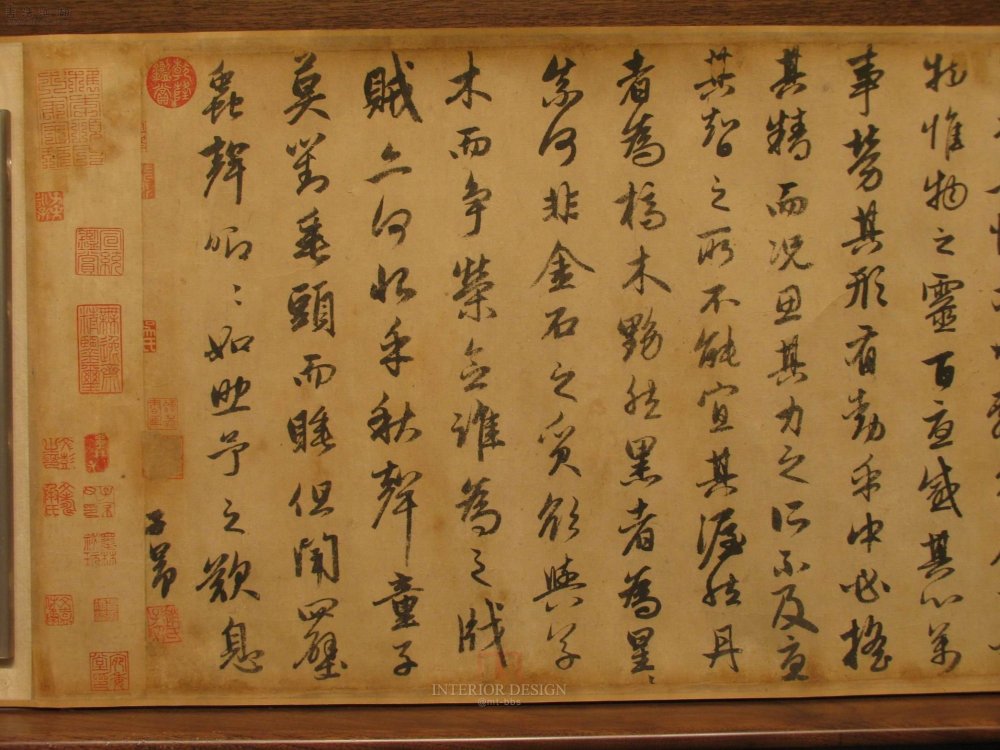 物惟物之靈百憂感其心萬
事勞其形有動乎中必搖
其精而況思其力之所不及憂
其智之所不能宜其渥然丹
者為槁木黟然黑者為星〻
奈何非金石之質欲與草
木而爭榮念誰為之戕
賊亦何恨乎秋聲童子
莫對垂頭而睡但聞四壁
蟲聲唧〻如助予之歎息
子昂
乾隆鑑賞
宣統鑑賞
無逸齋精鑒璽
INTERIOR DESIGN
@mt-bbs